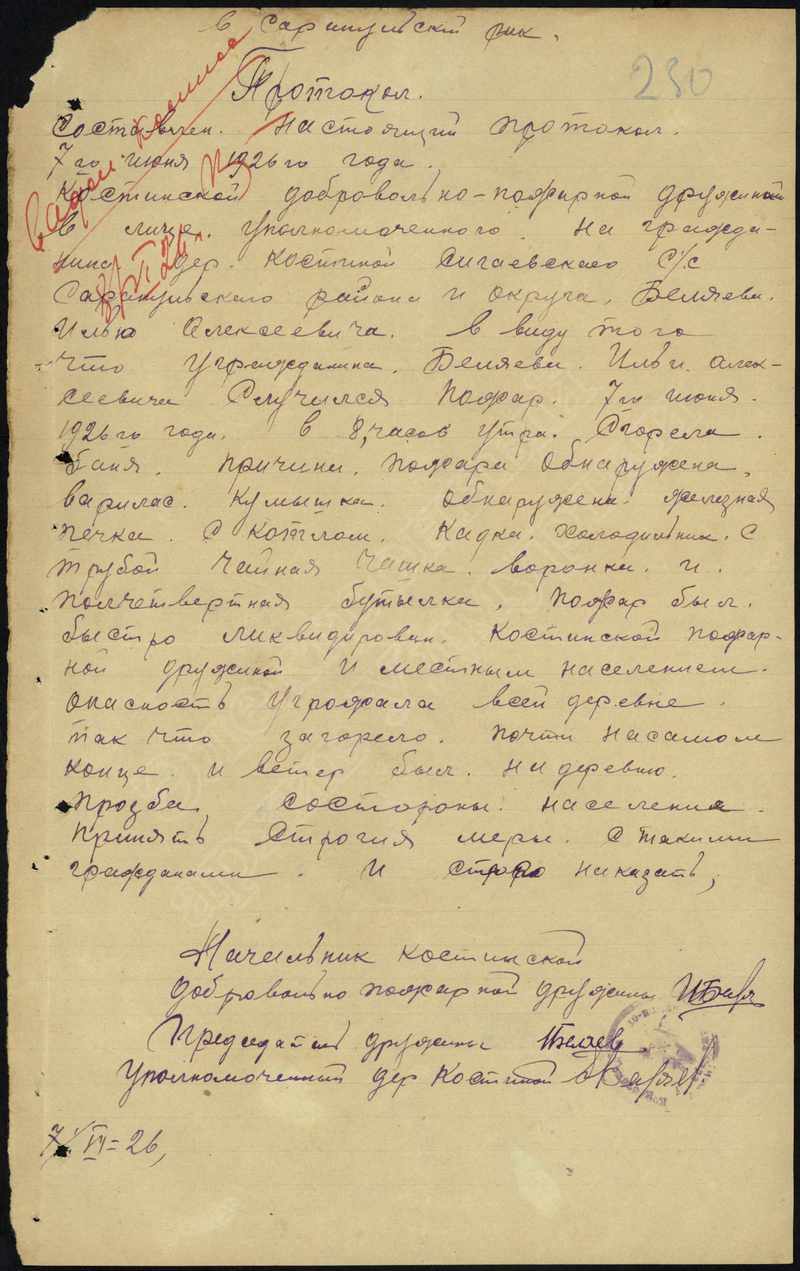 в Сарапульский рик.
230
Протокол.
Составлен. Настоящий протокол.
7го июня 1926го года.
Костинской добровольно-пожарной дружиной
В лице. уполномоченного. На гражда-
нина дер. Костиной Сигаевскаго С/с
Сарапульскаго района и округа, Беляева.
Илью Алексеевича. в виду того
что угражданина. Беляева. Ильи. Алек-
сеевича Случился пожар. 7го июня.
1926го года. в 8, часов утра. Сгорела.
баня. причина. пожара обнаружена,
варилас. Кумышка. обнаружена. железная
печка. С котлом. Кадка. холодильник. С
трубой чайная чашка. воронка. и.
полчетвертная бутылка. пожар был.
быстро ликвидирован. Костинской пожар-
ной дружиной И местным населением.
опасность угрожала всей деревне.
так что загорело. почти насамом
конце. и ветер был. на деревню.
прозба, состороны. населения.
принять Строгия меры. С такими
гражданами. И строго наказать,
Начальник Костинской
добровольно пожарной дружины
Председатель дружины Беляев
Уполномоченный дер Костиной
7/VI=26,